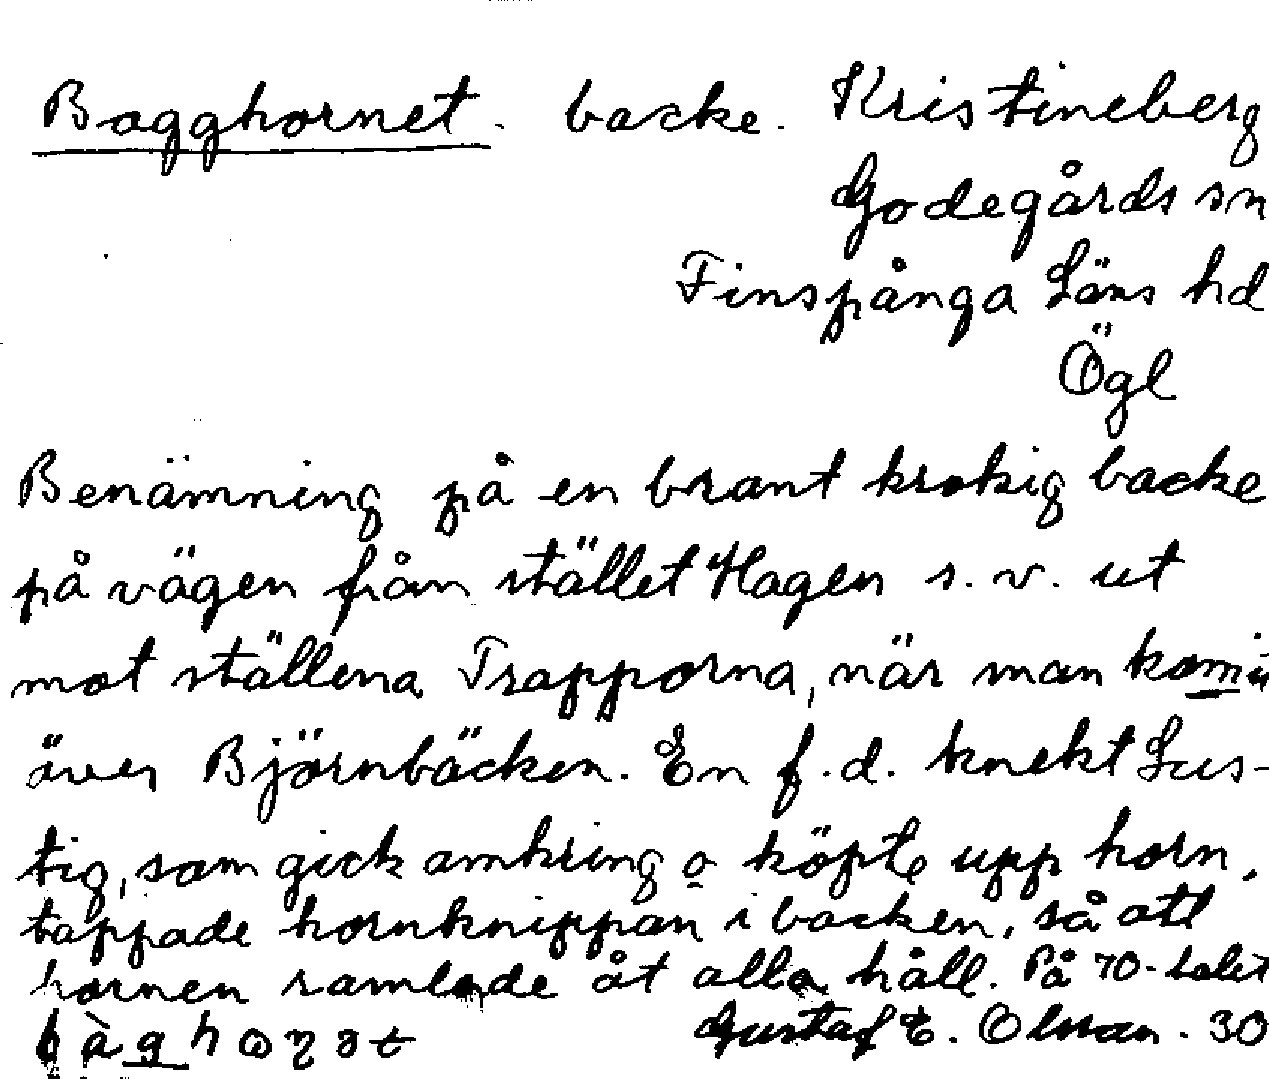 Bagghornet. backe. Kristineberg
Godegårds sn
Finspånga Läns hd
Ögl
Benämning på en brant krokig backe
på vägen från stället Hagen s.v. ut
mot ställena Trapporna, när man komit
över Björnbäcken. En f.d. knekt Lus-
tig, som gick omkring o köpte upp horn,
tappade hornknippan i backen, så att
hornen ramlade åt alla håll. På 70-talet
Gustaf E. Olsson. 30